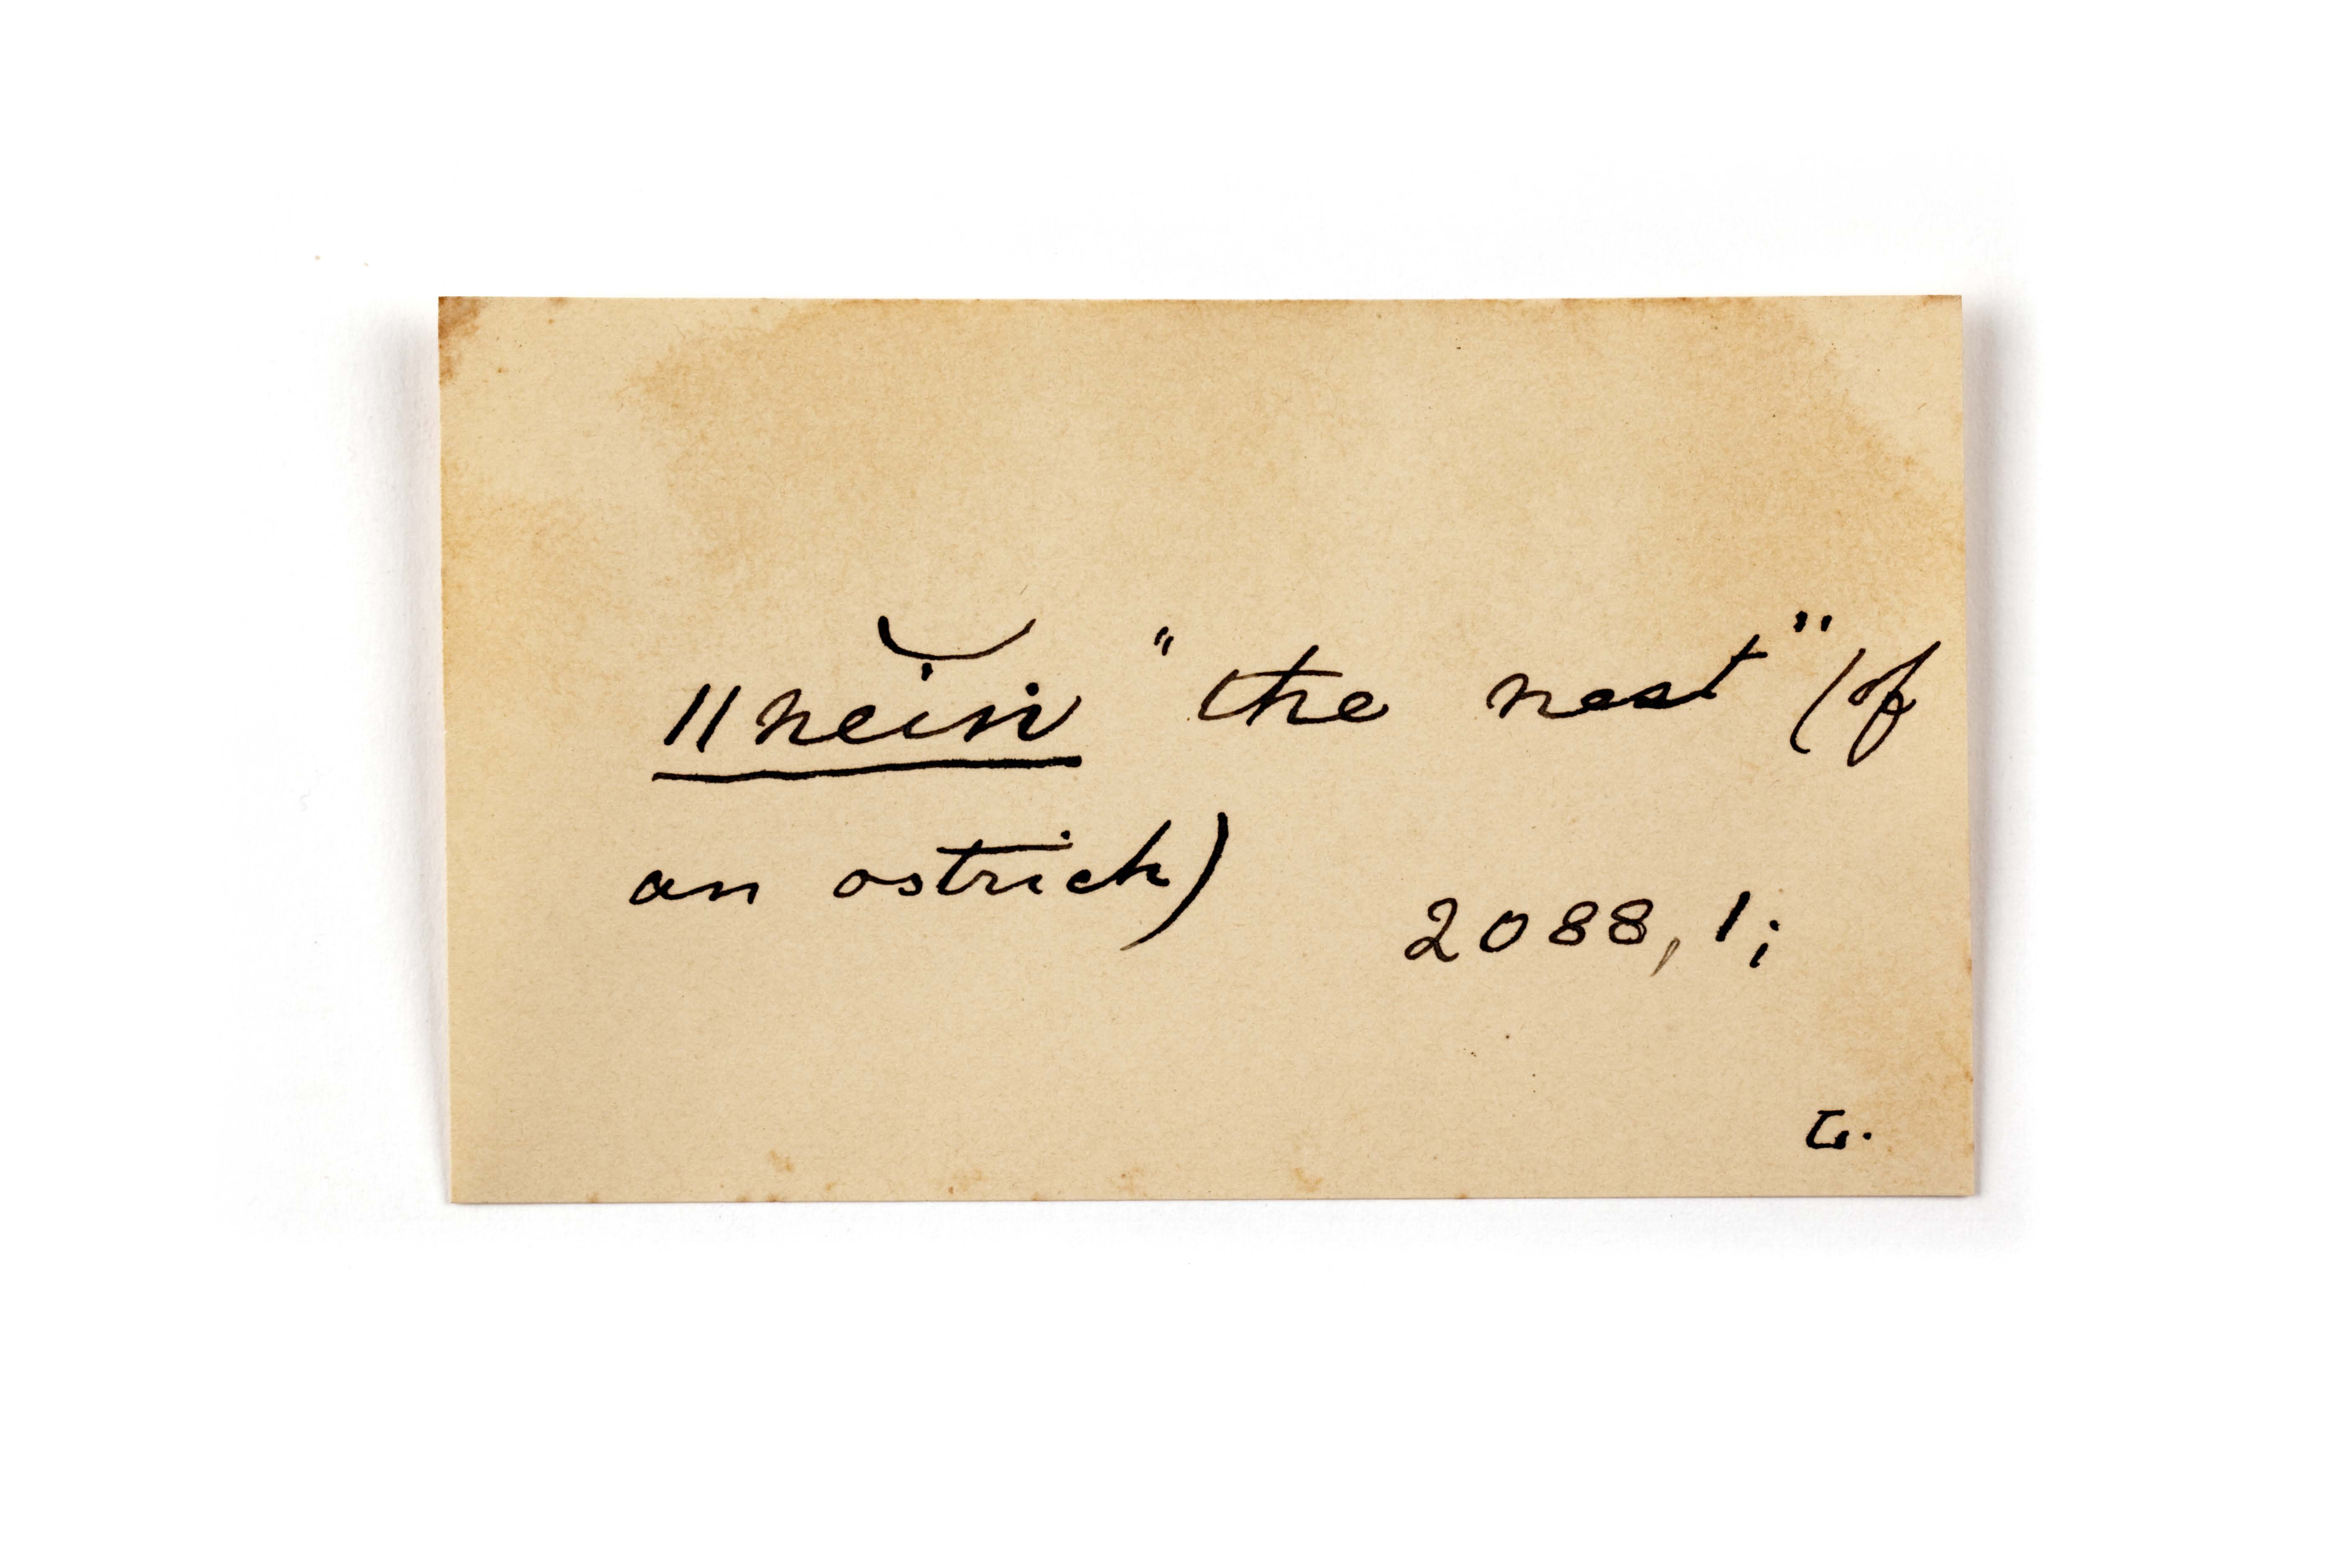 ||ne͝iṅ "the nest" (of
an ostrich)
2088, 1;